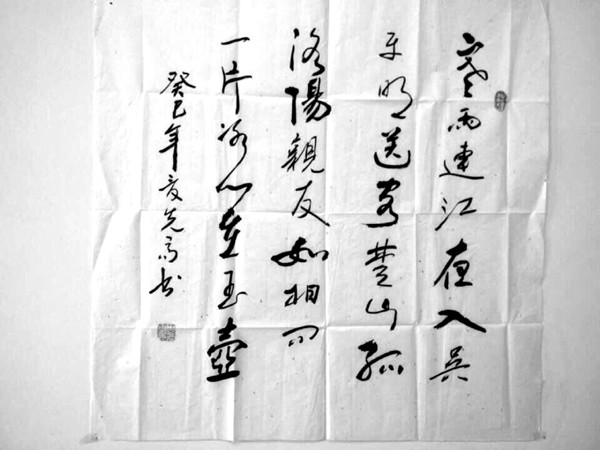 寒雨連江夜入吳
平明送客楚山孤
洛陽親友如相問
一片冰心在玉壺
癸巳年先书